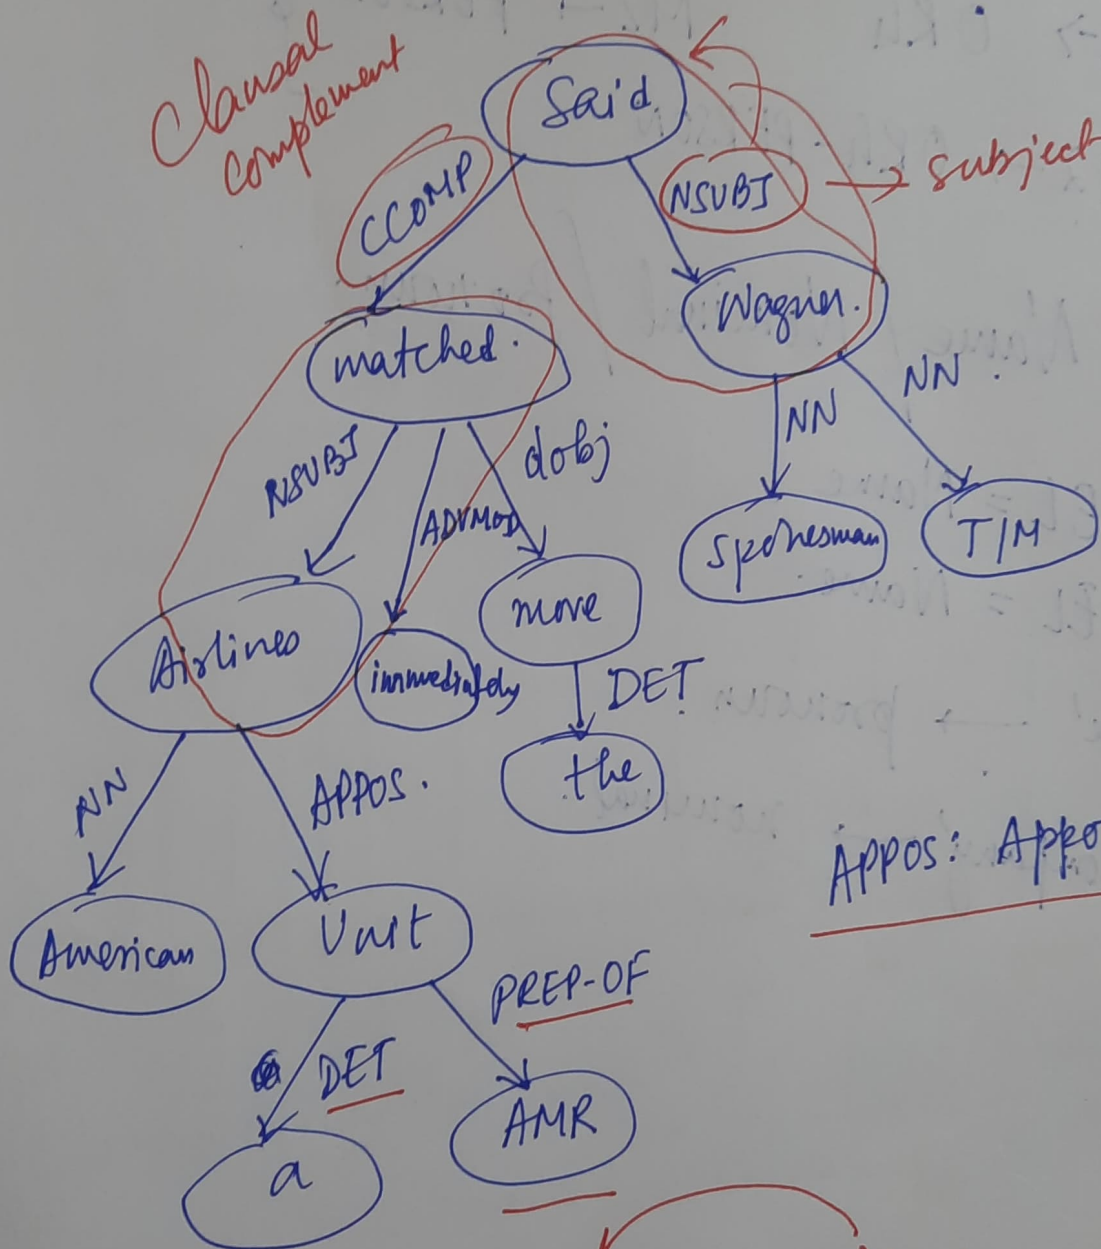 Clausal
complement
Said
CCOMP
NSUBJ → subject
Wagner.
matched.
NN
NN.
NSUBJ
ADVMOD
dobj
Spokesman
TIM
Airlines
immediately
move
DET
the
NN
APPOS.
APPOS: Appo
American
Unit
PREP-OF
DET
a
AMR